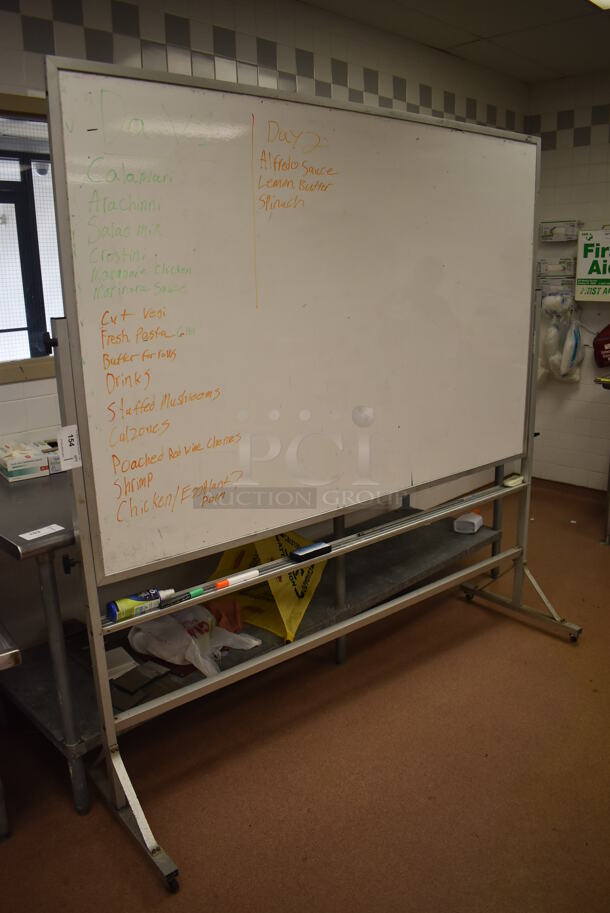 Day
Calamari
Arachinni
Salad mix
Crostini
Marinate Chicken
Marinara Sauce
Cut Vegi
Fresh Pasta
Butter for rolls
Drinks
Stuffed Mushrooms
Calzones
Poached Red Wine Cherries
Shrimp
Chicken/Eggplant?
Parm
Day 2
Alfredo Sauce
Lemon Butter
Spinach
154
PCI
AUCTION GROUP